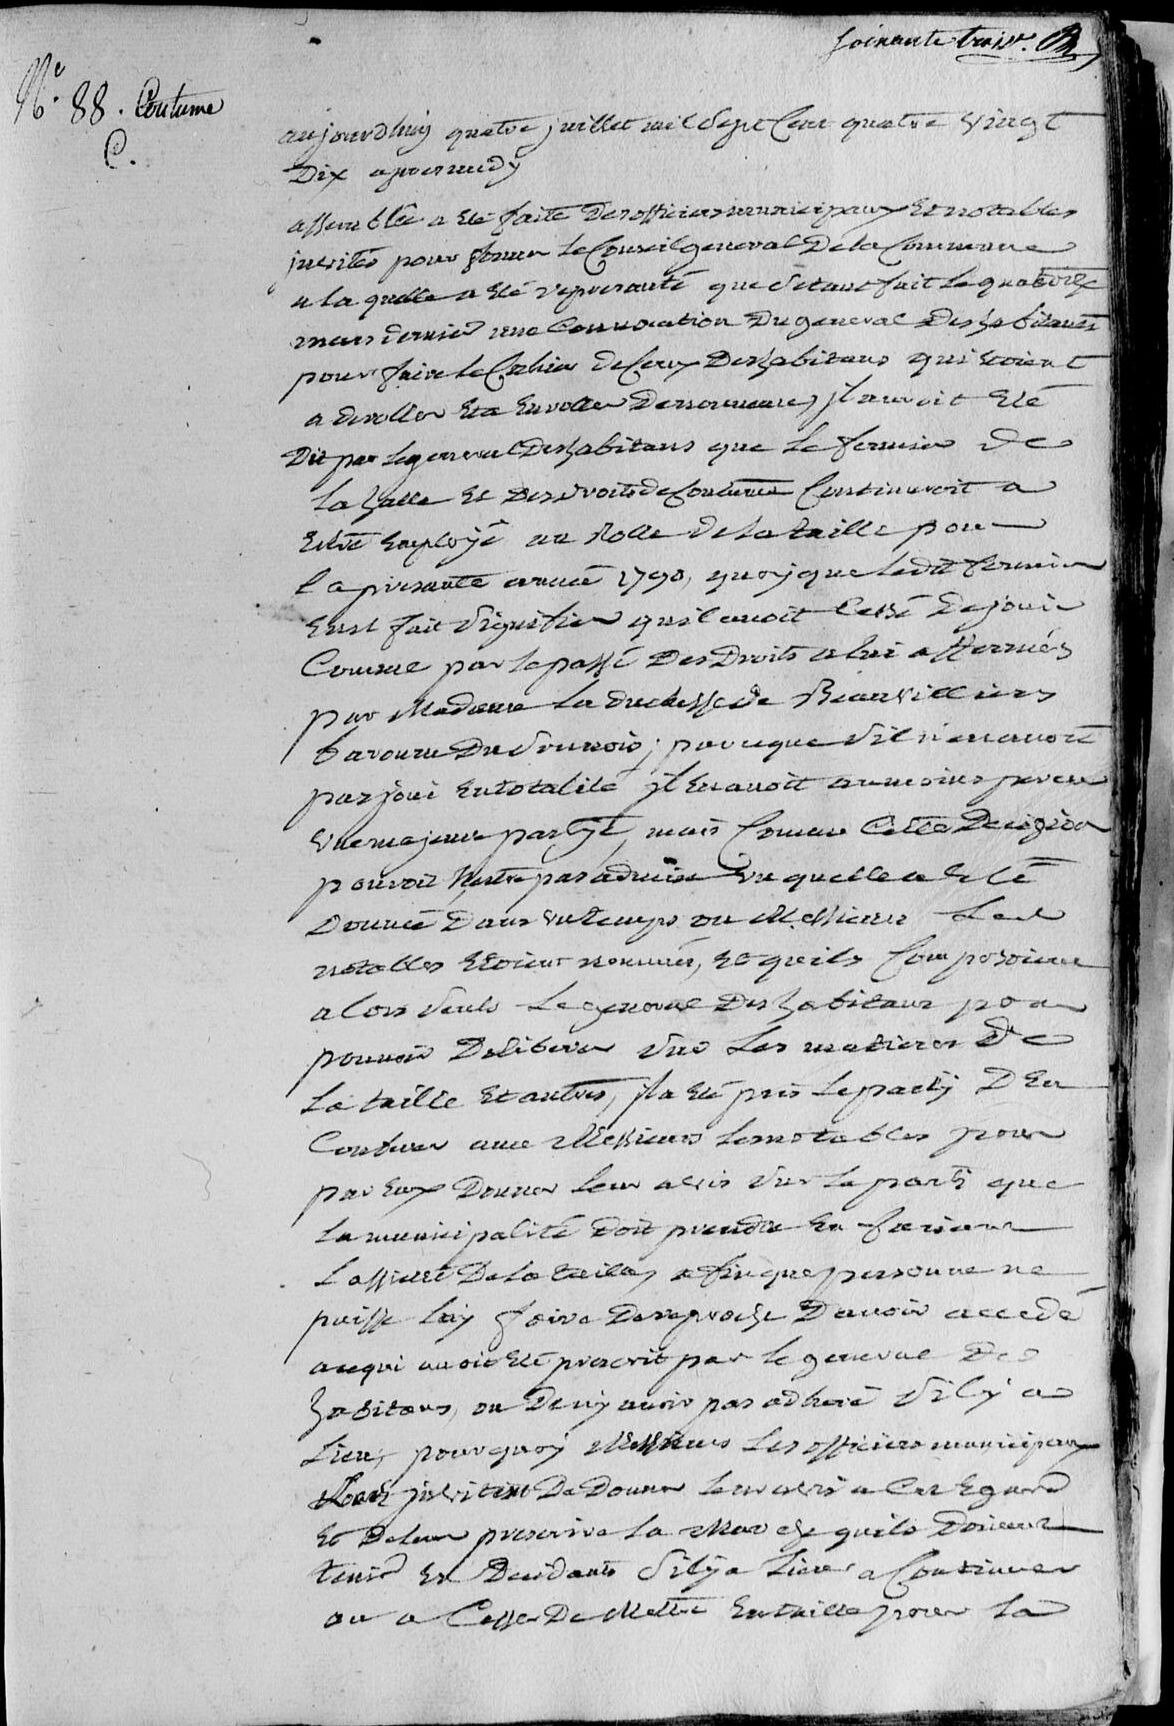 soixante trois.
N.º 88. Coutume
C.
aujourdhuy quatre juillet mil Sept Cent quatre Vingt
Dix apres midy
assemblée a eté faite Des officiers municipaux Et notables
invités pour former le Conseil general De la Commune
a la quelle a Eté representé que S'etant fait le quatorze
mars dernier une Convocation Du general Des habitants
pour faire le Cahier de Ceux Des habitans qui Etoient
a deroller Et a Enroller De nouveau, jl auroit Eté
Dit par le general Des habitans que le fermier de
la halle Et Des droits de Coutume Continueroit a
Estre Employé au Rolle de la taille pour
la presente année 1790, quoy que ledit fermier
Eust fait Signifier qu'il avoit Cessé De jouir
Comme par le passé Des Droits a lui affermés
par Madame la duchesse de Beauvilliers
baronne Du ; parce que S'il n'en avoit
pas joui En totalité jl En avoit au moins perceu
Une majeure partye, mais Comme Cette Decision
pouvoit N'estre pas admise Vu quelle a Eté
Donnée Dans Un temps ou Messieurs Les
notables Etoient nommés, Et qu'ils Composoient
alors Seuls Le general Des habitans pour
pouvoir Deliberer Sur Les matieres De
La taille Et autres, jl a Eté pris Le party D'En
Conferer avec Messieurs Les notables pour
par Eux Donner leur avis Sur Le parti que
La municipalité Doit prendre En faisant
L'assiette De la taille, afin que personne ne
puisse luy faire De reproche D'avoir accedé
a ce qui avoit Eté prescrit par le general Des
habitans, ou De n'y avoir pas adheré S'il y a
Lieu, pourquoy Messieurs Les officiers municipaux
invitent De Donner leur avis a Cet Egard
Et De leur prescrire la Marche qu'ils Doivent
tenir En Decidant S'il y a Lieu a Continuer
ou a Cesser De Mettre En taille pour la